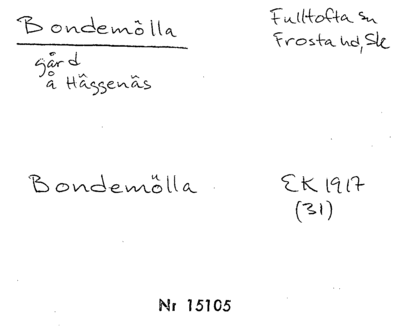 Bondemölla
Fulltofta sn
Frosta hd, Sk
gård
å Häggenäs
Bondemölla
EK 1917
(31)
Nr 15105